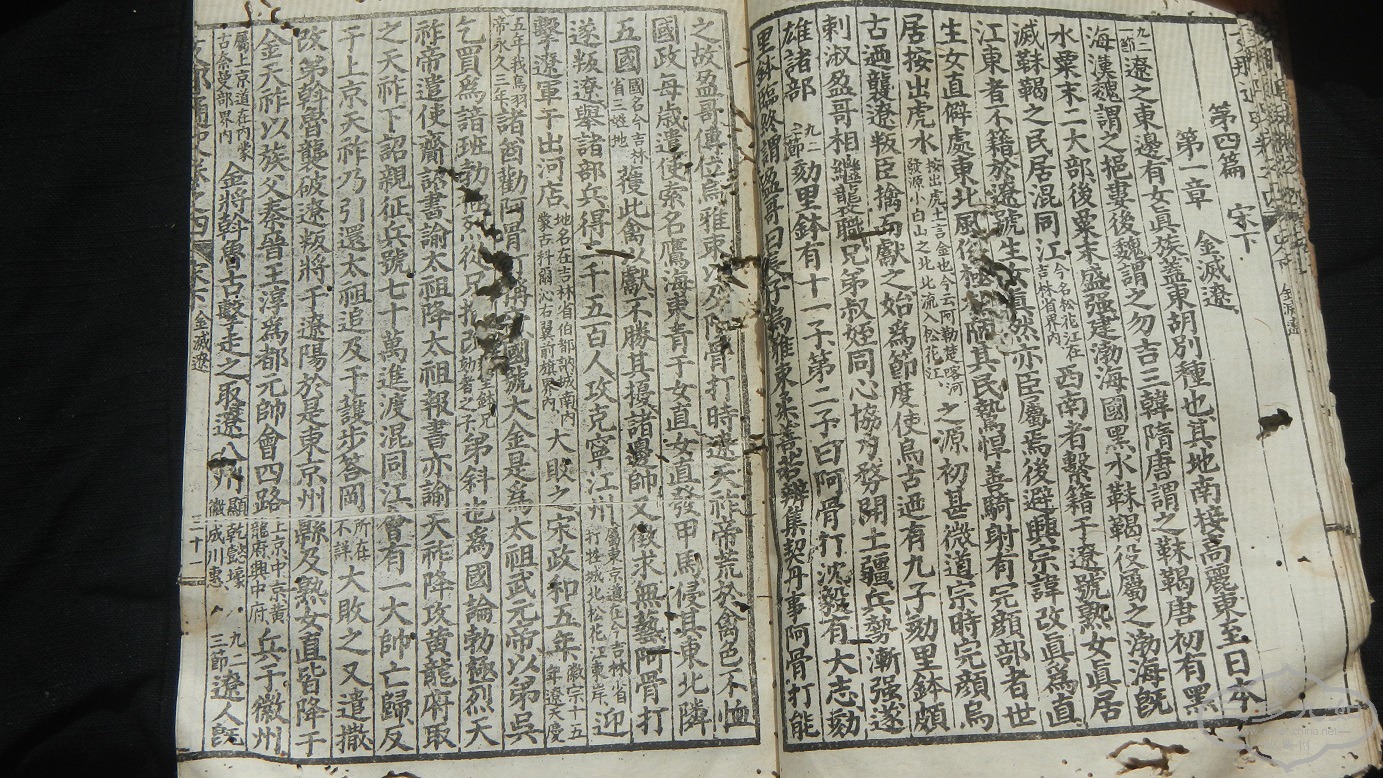 第四篇 宋下
第一章 金滅遼
九二一節 遼之東邊有女眞族蓋東胡別種也其地南接高麗東至日本
海漢魏謂之挹婁後魏謂之勿吉三韓隋唐謂之靺鞨唐初有黑
水粟末二大部後粟末盛强建渤海國黑水靺鞨役屬之渤海旣
滅靺鞨之民居混同江今名松花江在吉林省界內西南者繫籍于遼號熟女眞居
江東者不籍於遼號生女眞然亦臣屬焉後避興宗諱改眞爲直
生女直僻處東北風俗極陋其民鷙悍善騎射有完顔部者世
居按出虎水按出虎土言金也今云阿勒楚喀河發源小白山之北北流入松花江之源初甚微道宗時完顔烏
古迺襲遼叛臣擒而獻之始爲節度使烏古迺有九子劾里鉢頗
剌淑盈哥相繼襲職兄弟叔姪同心協力務開土疆兵勢漸强遂
雄諸部九二二節劾里鉢有十一子第二子曰阿骨打沈毅有大志劾
里鉢臨終謂盈哥曰長子烏雅束柔善若辦集契丹事阿骨打能
之故盈哥傳位烏雅束以及阿骨打時遼天祚帝荒於禽色不恤
國政每歲遣使索名鷹海東靑于女直女直發甲馬侵其東北隣
五國國名今吉林省三姓地獲此禽以獻不勝其擾諸邊帥又徵求無藝阿骨打
遂叛遼擧諸部兵得二千五百人攻克寧江州屬東京道在今吉林省打牲城北松花江東岸迎
擊遼軍于出河店地名在吉林省伯都訥城南內蒙古科爾沁右翼前旗界內大敗之宋政和五年徽宗十五年遼天慶
五年我鳥羽帝永久三年諸酋勸阿骨打稱國號大金是爲太祖武元帝以弟吳
乞買爲諳班勃烈從兄撒改劾者之子弟斜也爲國論勃極烈天
祚帝遣使齎詔書諭太祖降太祖報書亦諭天祚降攻黃龍府取
之天祚下詔親征兵號七十萬進渡混同江會有一大帥亡歸反
于上京天祚乃引還太祖追及于護步答岡所在不詳大敗之又遣撒
改弟斡魯襲破遼叛將于遼陽於是東京州縣及熟女直皆降于
金天祚以族父秦晉王淳爲都元帥會四路上京中京黃龍府興中府兵于徽州
屬上京道在內蒙古奈曼部界內金將斡魯古擊走之取遼八州顯乾懿壕徽成川惠九二三節遼人旣
金滅遼
三十二